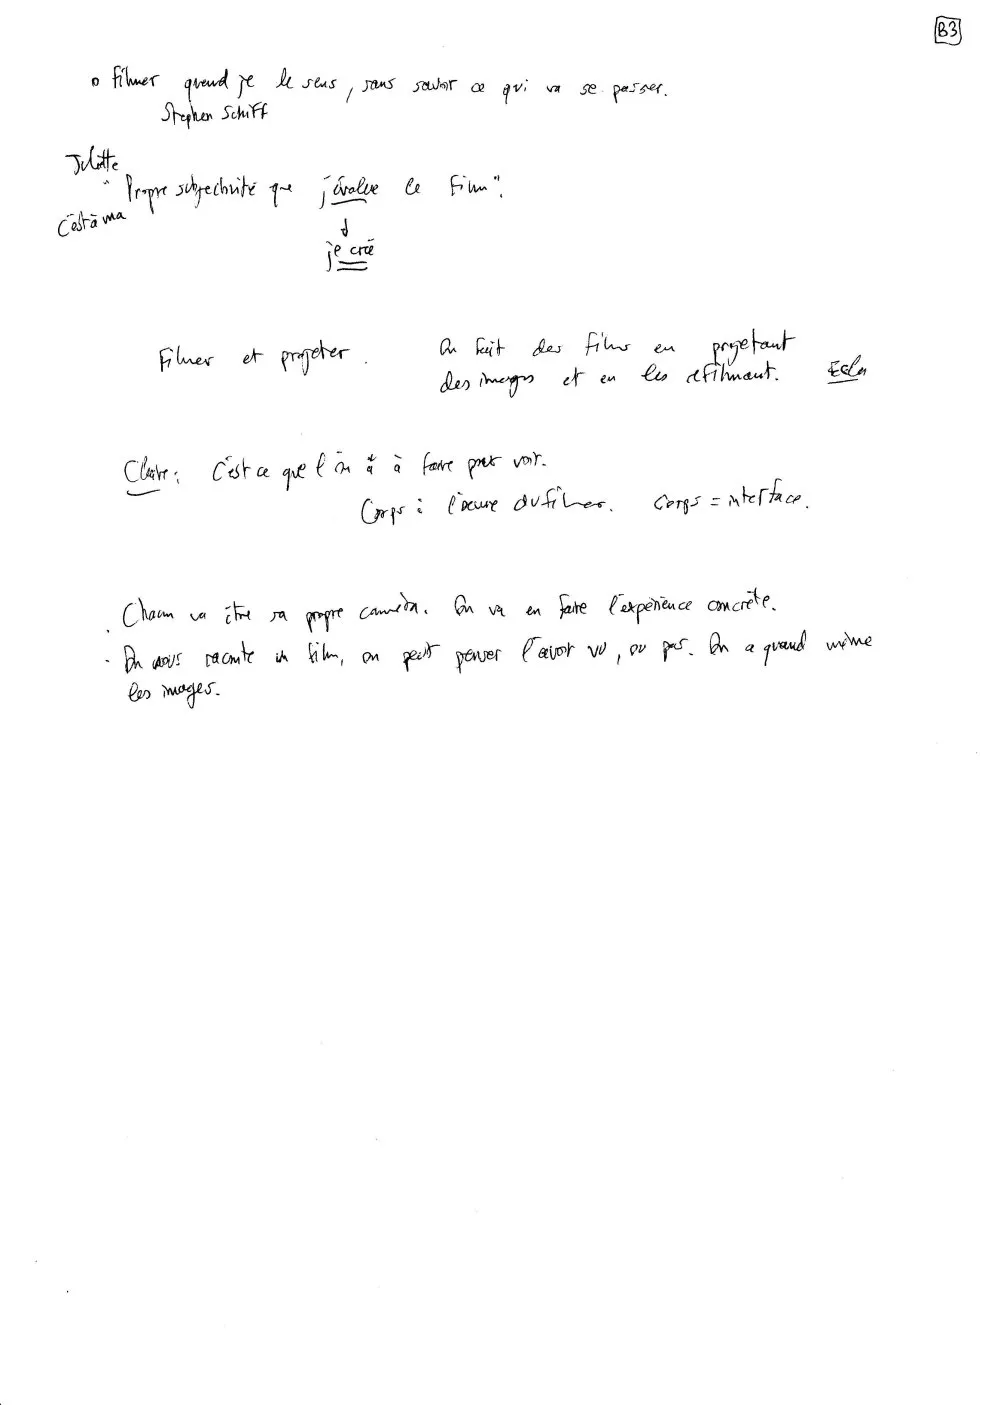 B3
filmer quand je le sens, sans savoir ce qui va se passer.
Stephen Schiff
Juliette
"Propre subjectivité que j'évalue le film".
C'est à ma
je crée
Filmer et projeter.
On fait des films en projetant
des images et en les refilmant.
Claire : C'est ce que l'on a à faire pour voir.
Corps à l'œuvre du filmer. Corps = interface.
. Chacun va être sa propre caméra. On va en faire l'expérience concrète.
- On nous raconte un film, on peut penser l'avoir vu, ou pas. On a quand même
les images.